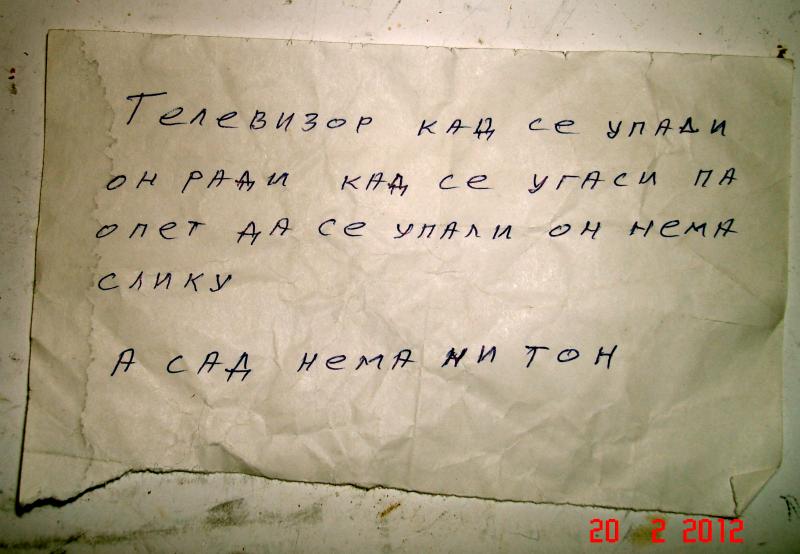 Телевизор кад се упади
он ради кад се угаси па
опет да се упали он нема
слику
а сад нема ни тон
20 2 2012